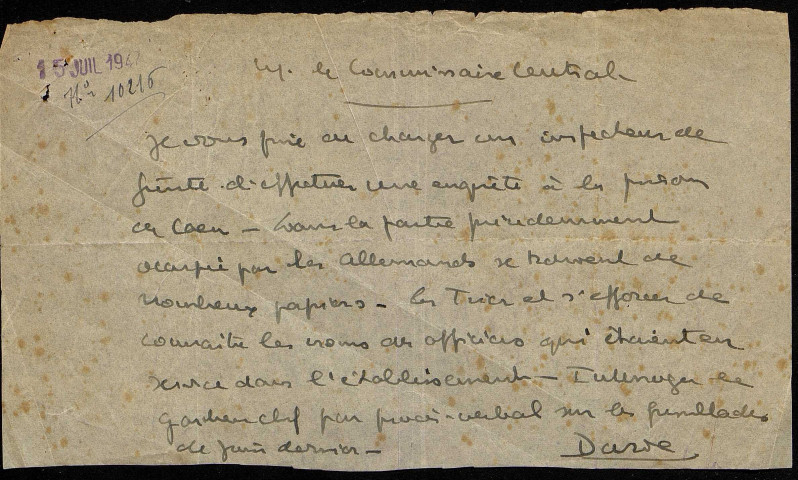 15 JUIL 194
No 10216
M. le Commissaire Central
Je vous prie de charger un inspecteur de
Sûreté d'effectuer une enquête à la prison
de Caen - Dans la partie précédemment
occupée par les Allemands se trouvent de
nombreux papiers - les Trier et s'efforcer de
connaître les noms des officiers qui étaient en
service dans l'établissement - Interroger le
gardien chef par procès-verbal sur les fusillades
de juin dernier -